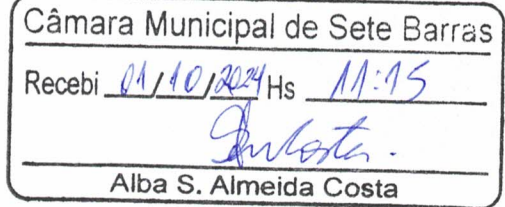 Câmara Municipal de Sete Barras
Recebi 01/10/2024 Hs 11:15
Alba S. Almeida Costa